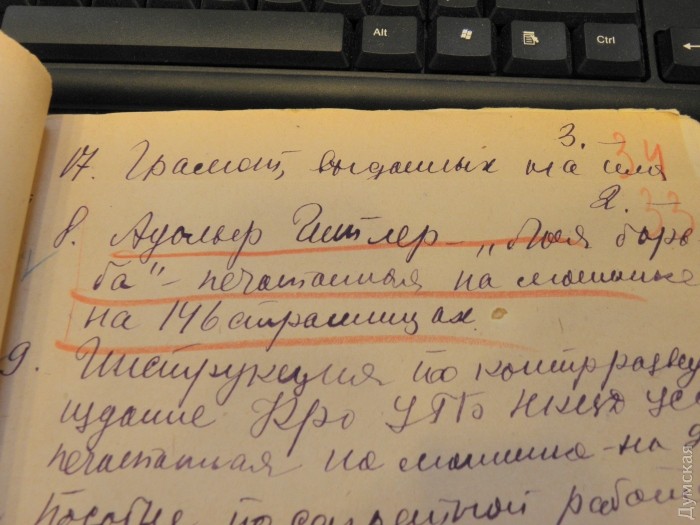 Alt
Ctrl
3.
34
17. Грамот, выданных на имя
2. –
33
8. Адольф Гитлер – „Моя борь
ба" – печатанная на машинке
на 146 страницах.
9. Инструкция по контрразвед
издание Кро УГБ НКВД УСС
печатанная на машинке – на
Пособие по секретной работ
Думская